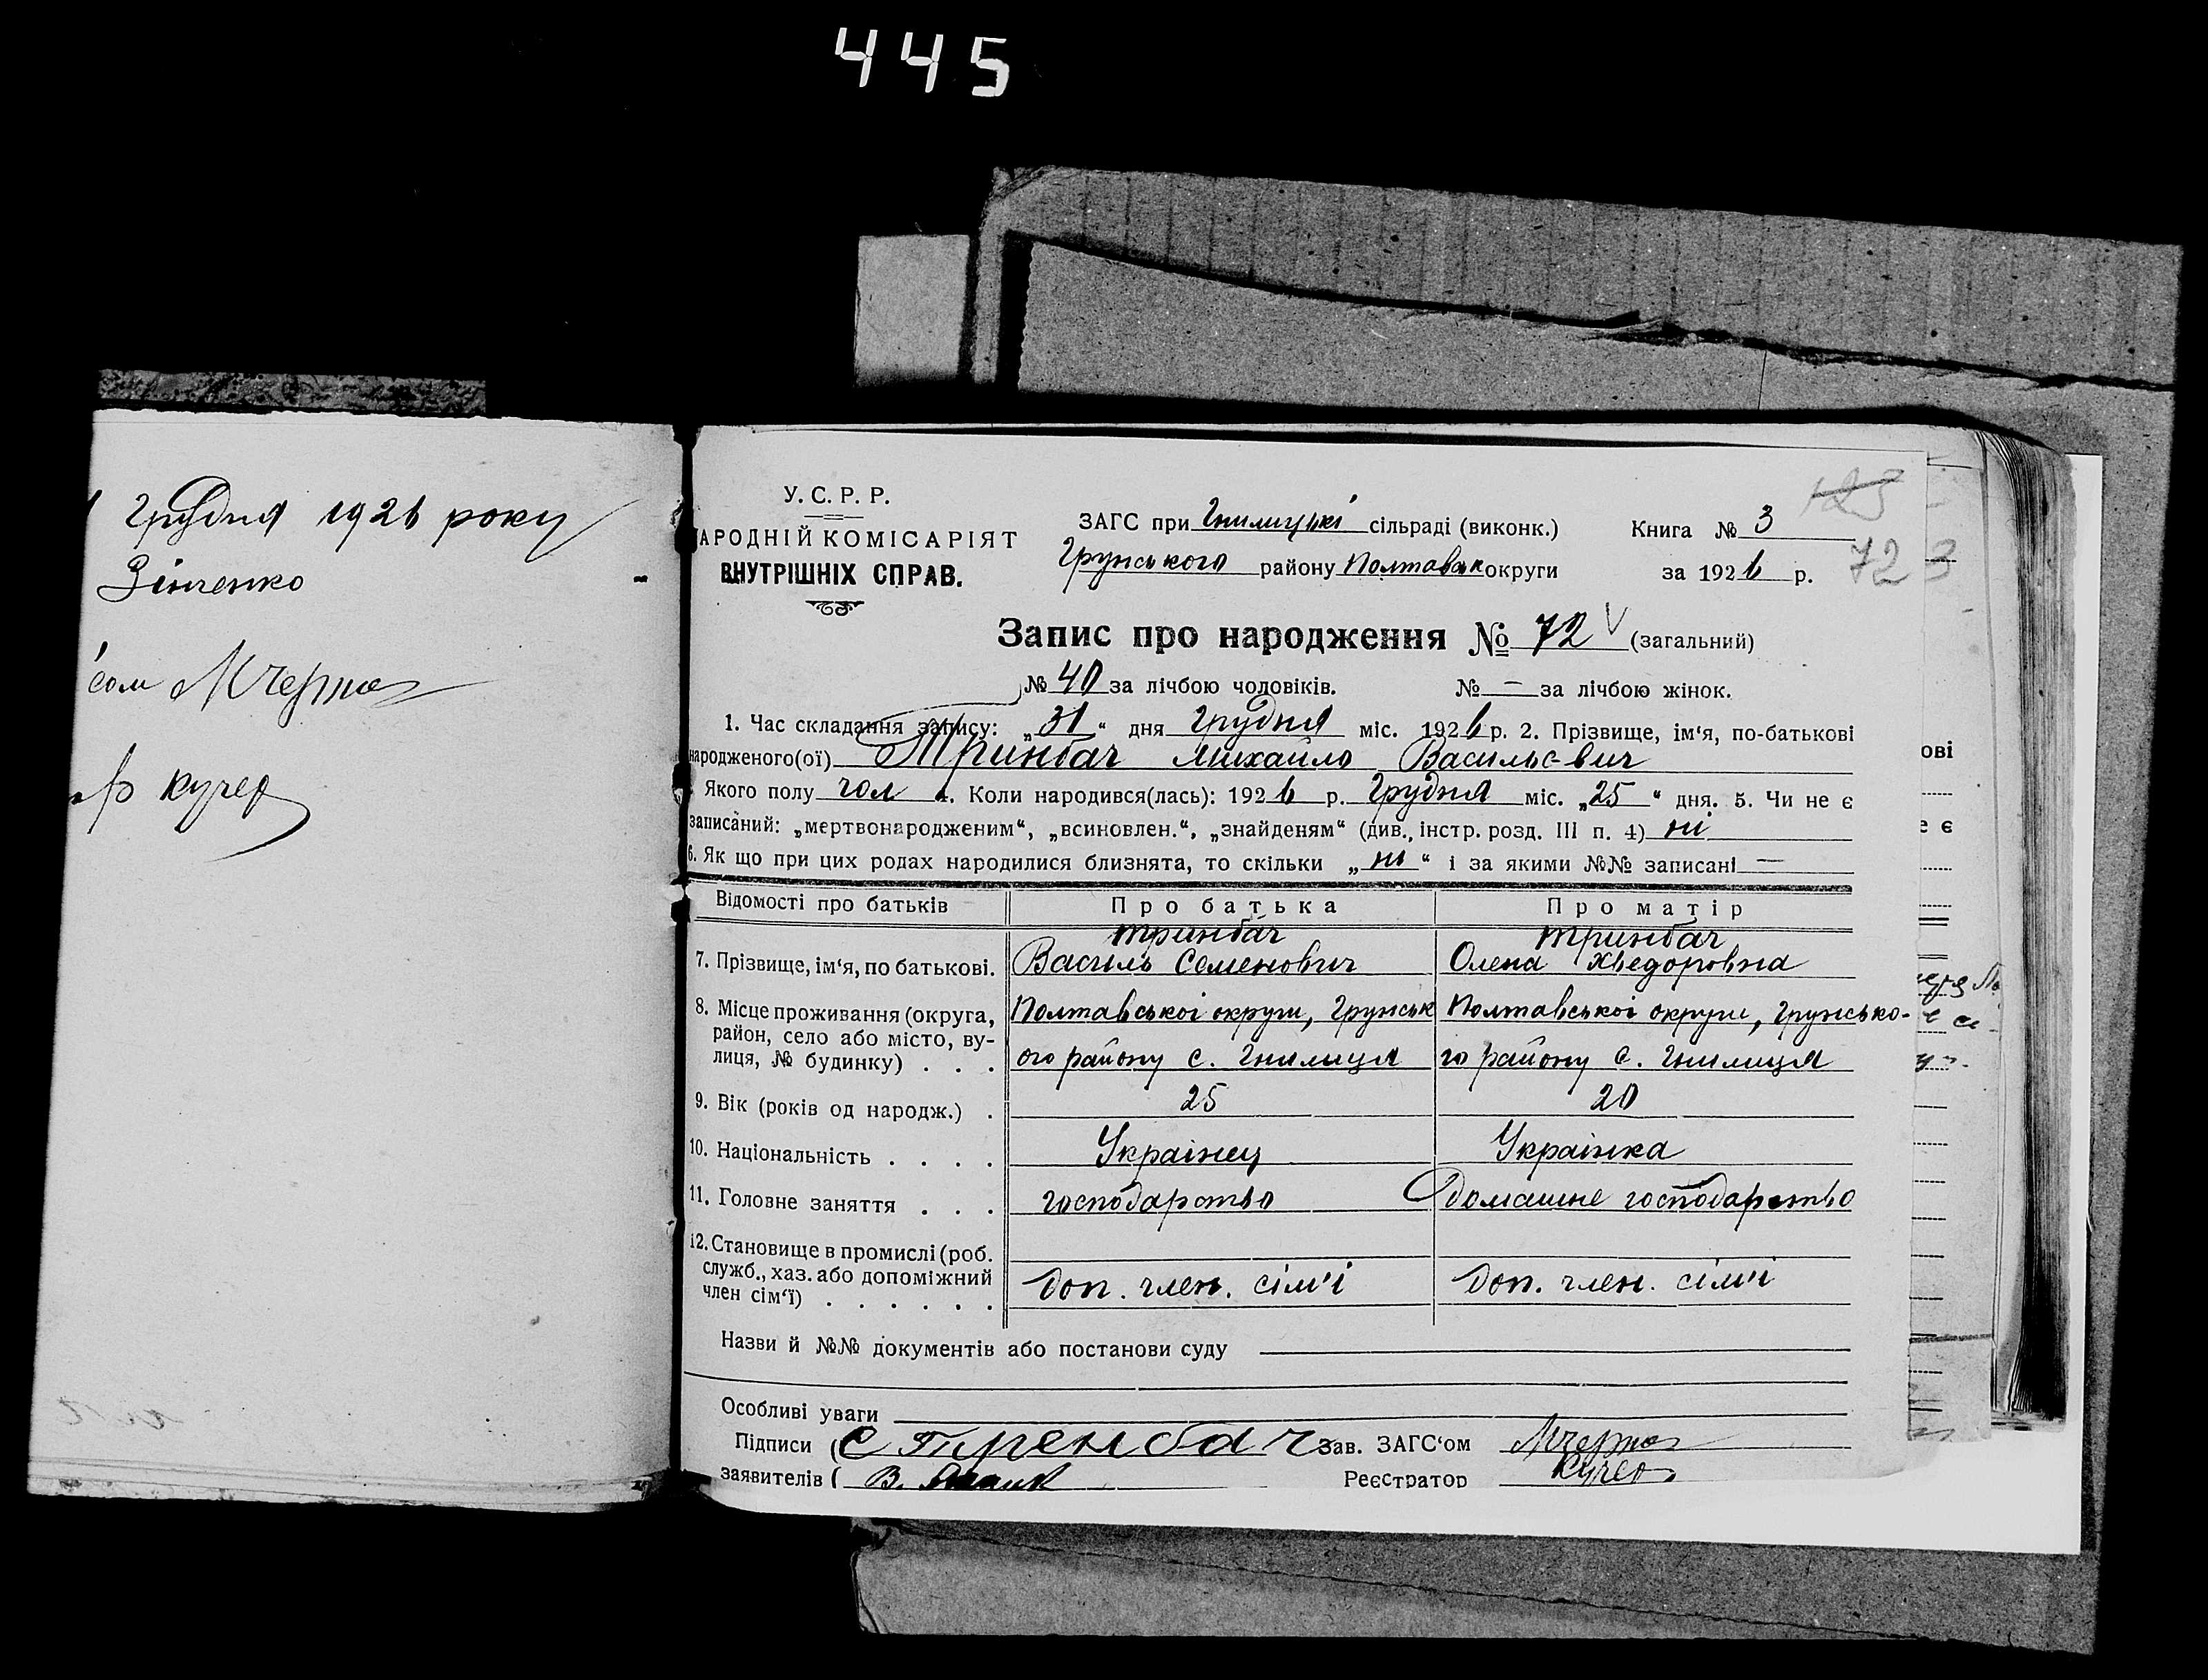 445
Грудня 1926 року
Зінченко
ом МЧерно
р Кучер
У. С. Р. Р.
АРОДНІЙ КОМІСАРІЯТ
ВНУТРІШНІХ СПРАВ.
ЗАГС при Гнилицькі сільраді (виконк.)
Грунського району Полтавськ округи
Книга № 3
за 1926 р.
123
72 3
Запис про народження № 72 V (загальний)
№ 40 за лічбою чоловіків. № — за лічбою жінок.
1. Час складання запису: „31“ дня Грудня міс. 1926 р. 2. Прізвище, ім'я, по-батькові
народженого(ої) Тринбач Михайло Васильевич
Якого полу чол 4. Коли народився(лась): 1926 р. Грудня міс. „25“ дня. 5. Чи не є
записаний: „мертвонародженим“, „всиновлен.“, „знайденям“ (див., інстр. розд. III п. 4) ні
6. Як що при цих родах народилися близнята, то скільки „ні“ і за якими №№ записані —
Відомості про батьків Про батька Про матір
7. Прізвище, ім'я, по батькові. Тринбач Василь Семенович Тринбач Олена Хведоровна
8. Місце проживання (округа, Полтавськоі округи, Грунськ Полтавськоі округи, Грунсько-
район, село або місто, ву-
лиця, № будинку) . . . ого району с. Гнилиця го району с. Гнилиця
9. Вік (років од народж.) . 25 20
10. Національність . . . . Украінец Украінка
11. Головне заняття . . . господарство домашне господарство
12. Становище в промислі (роб.
служб., хаз. або допоміжний доп. член. сім'і доп. член. сім'і
член сім'ї) . . . . . .
Назви й №№ документів або постанови суду
Особливі уваги
Підписи ( С Тренбач Зав. ЗАГС'ом МЧерно
заявителів ( В. Реєстратор Кучер
ові
е є